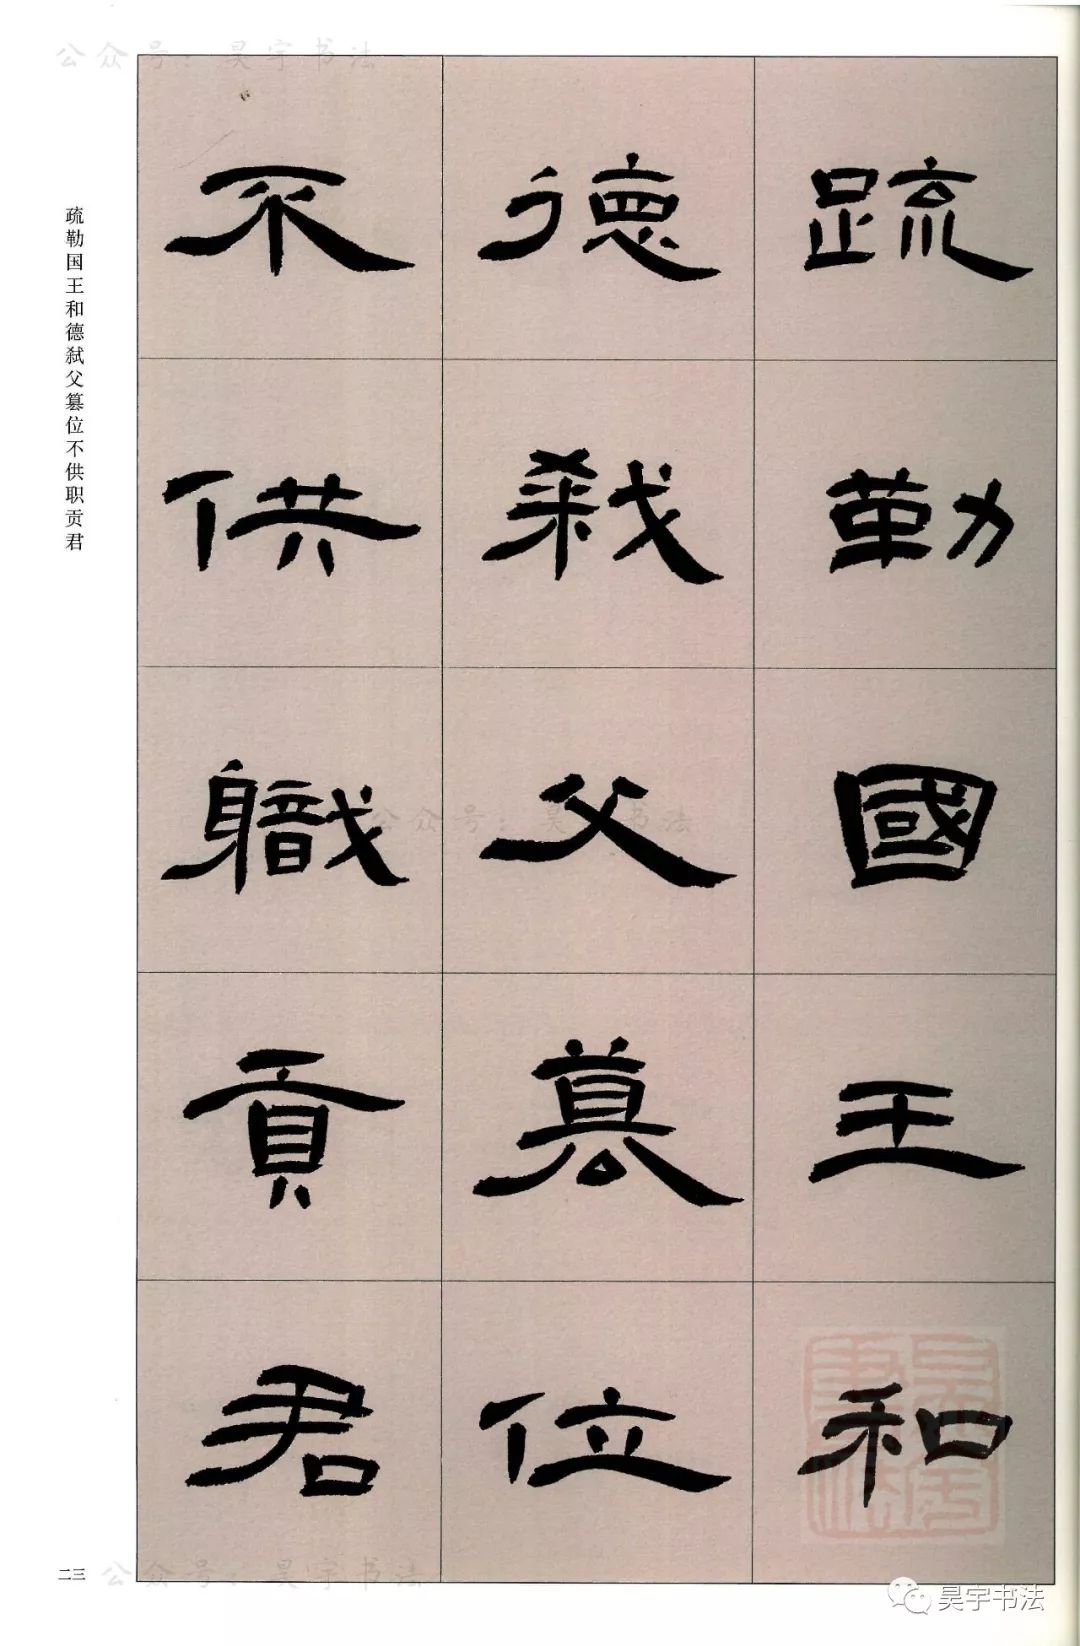 公众号：昊宇书法
疏勒国王和德弑父篡位不供职贡君
疏勒國王和
德弑父篡位
不供職貢君
公众号：昊宇书法
二三
公众号：昊宇书法
昊宇书法